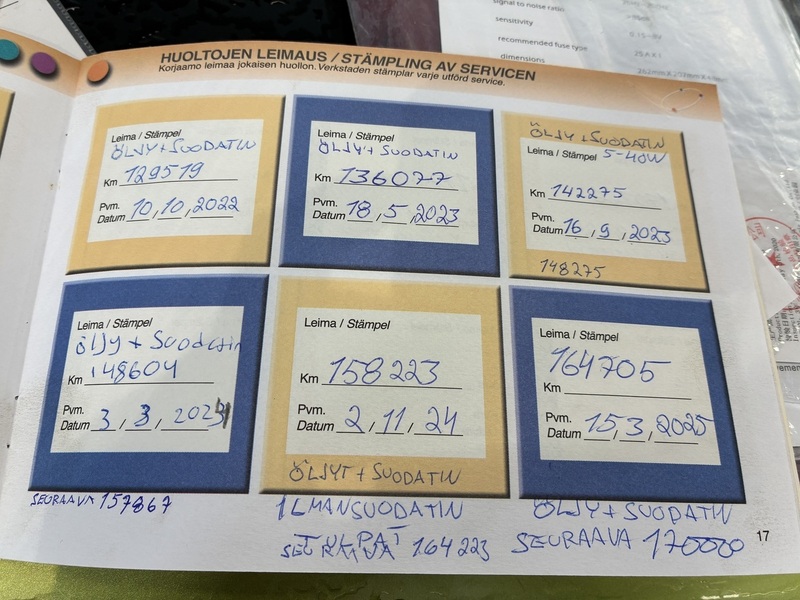 signal to noise ratio
sensitivity
0.15~8V
recommended fuse type
25 A X 1
dimensions
HUOLTOJEN LEIMAUS / STÄMPLING AV SERVICEN
Korjaamo leimaa jokaisen huollon. Verkstaden stämplar varje utförd service.
Leima / Stämpel
ÖLJY + SUODATIN
Km 129519
Pvm.
Datum 10, 10, 2022
Leima / Stämpel
ÖLJY + SUODATIN
Km 136077
Pvm.
Datum 18, 5, 2023
ÖLJY + SUODATIN
Leima / Stämpel 5-40W
Km 142275
Pvm.
Datum 16, 9, 2023
148275
Leima / Stämpel
ÖlJy + Suodatin
Km 148604
Pvm.
Datum 3, 3, 2024
SEURAAVA 157867
Leima / Stämpel
Km 158223
Pvm.
Datum 2, 11, 24
ÖLJYT + SUODATIN
ILMANSUODATIN
TULPAT
SEURAAVA 164223
Leima / Stämpel
164705
Km
Pvm.
Datum 15, 3, 2025
ÖLJY + SUODATIN
SEURAAVA 170000
17